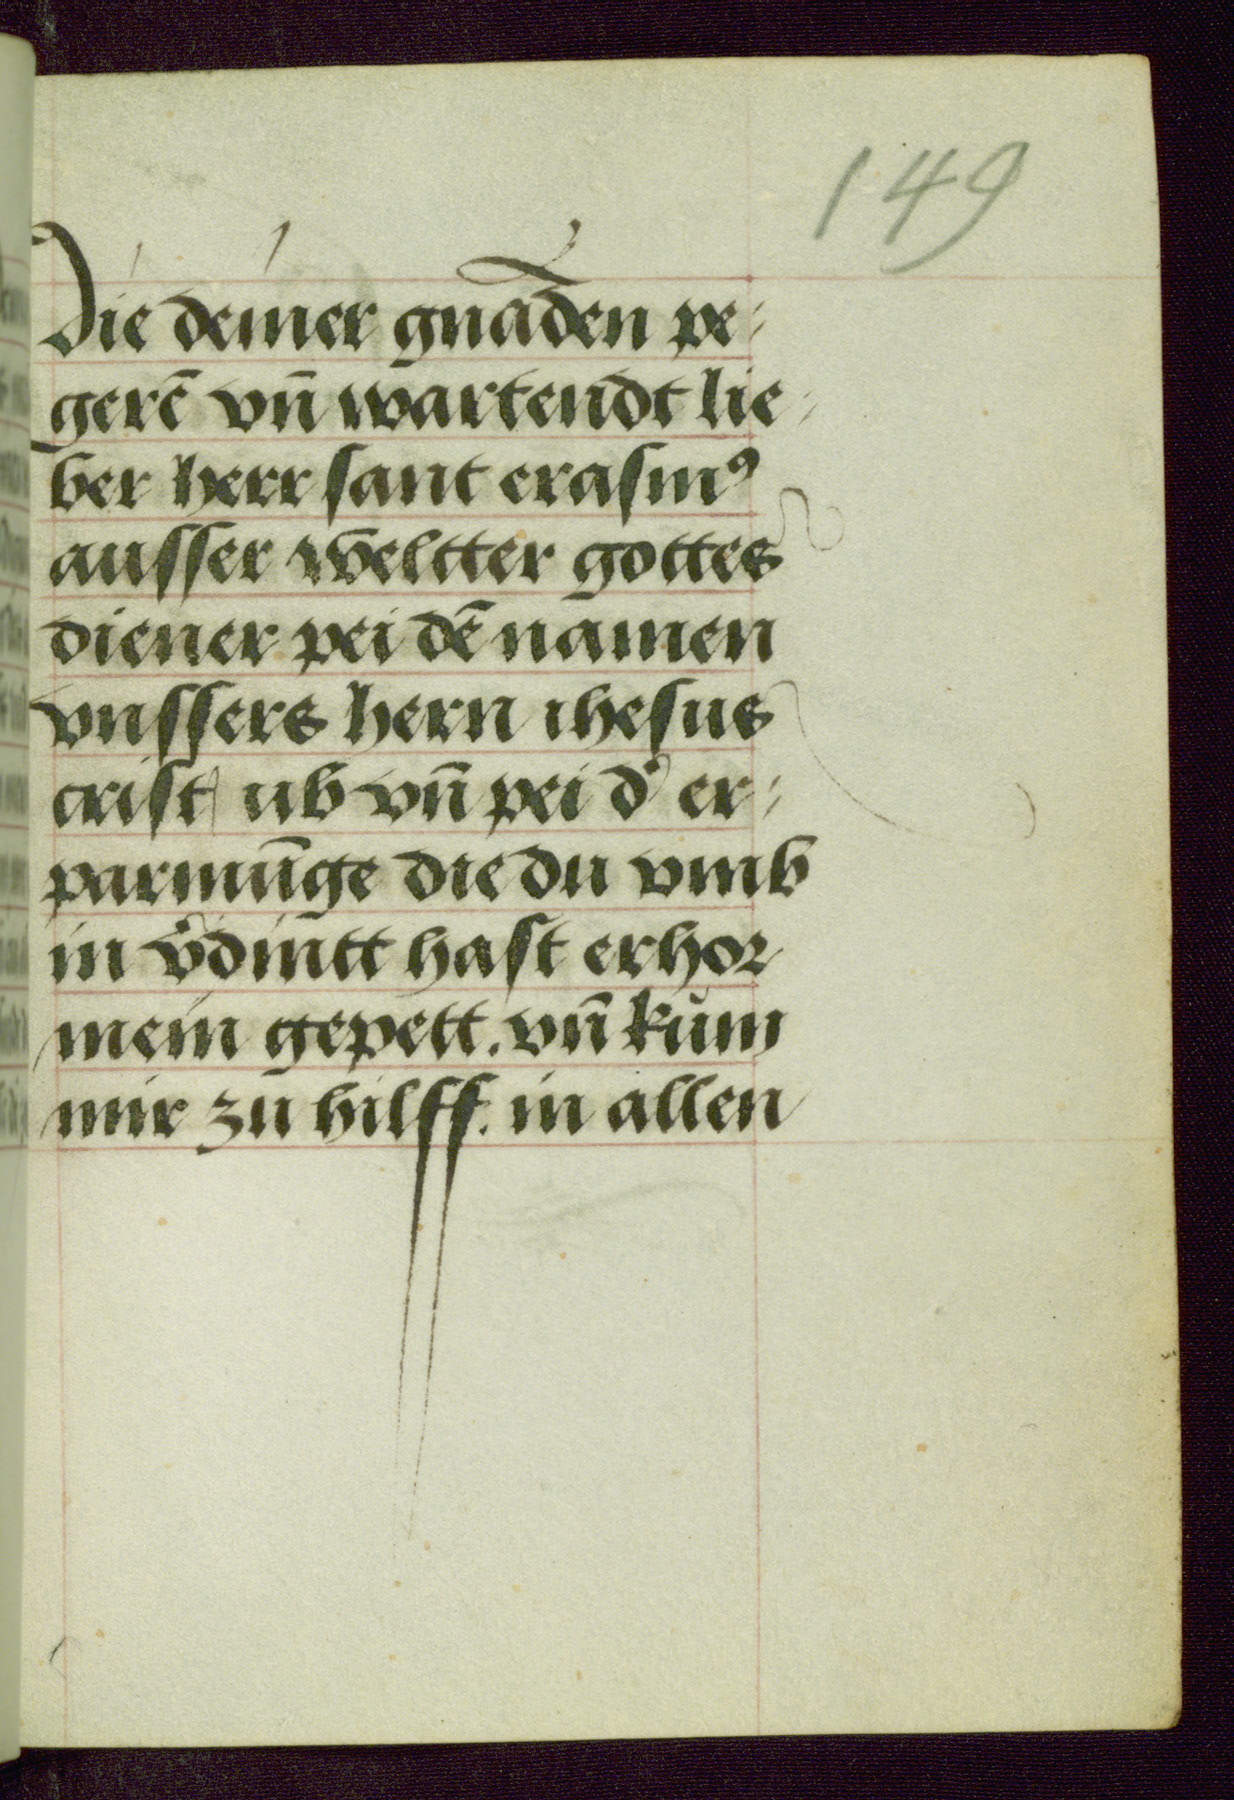 149
Die deiner gnaden pe-
gerē vn̄ wartendt lie-
ber herr sant erasmꝰ
ausser weltter gottes
diener pei dē namen
vnssers hern ihesus
crist ub vn̄ pei d' er-
parmūge die du vmb
in v̊dīntt hast erhor
mein gepett. vn̄ kům
mir zu hilff. in allen